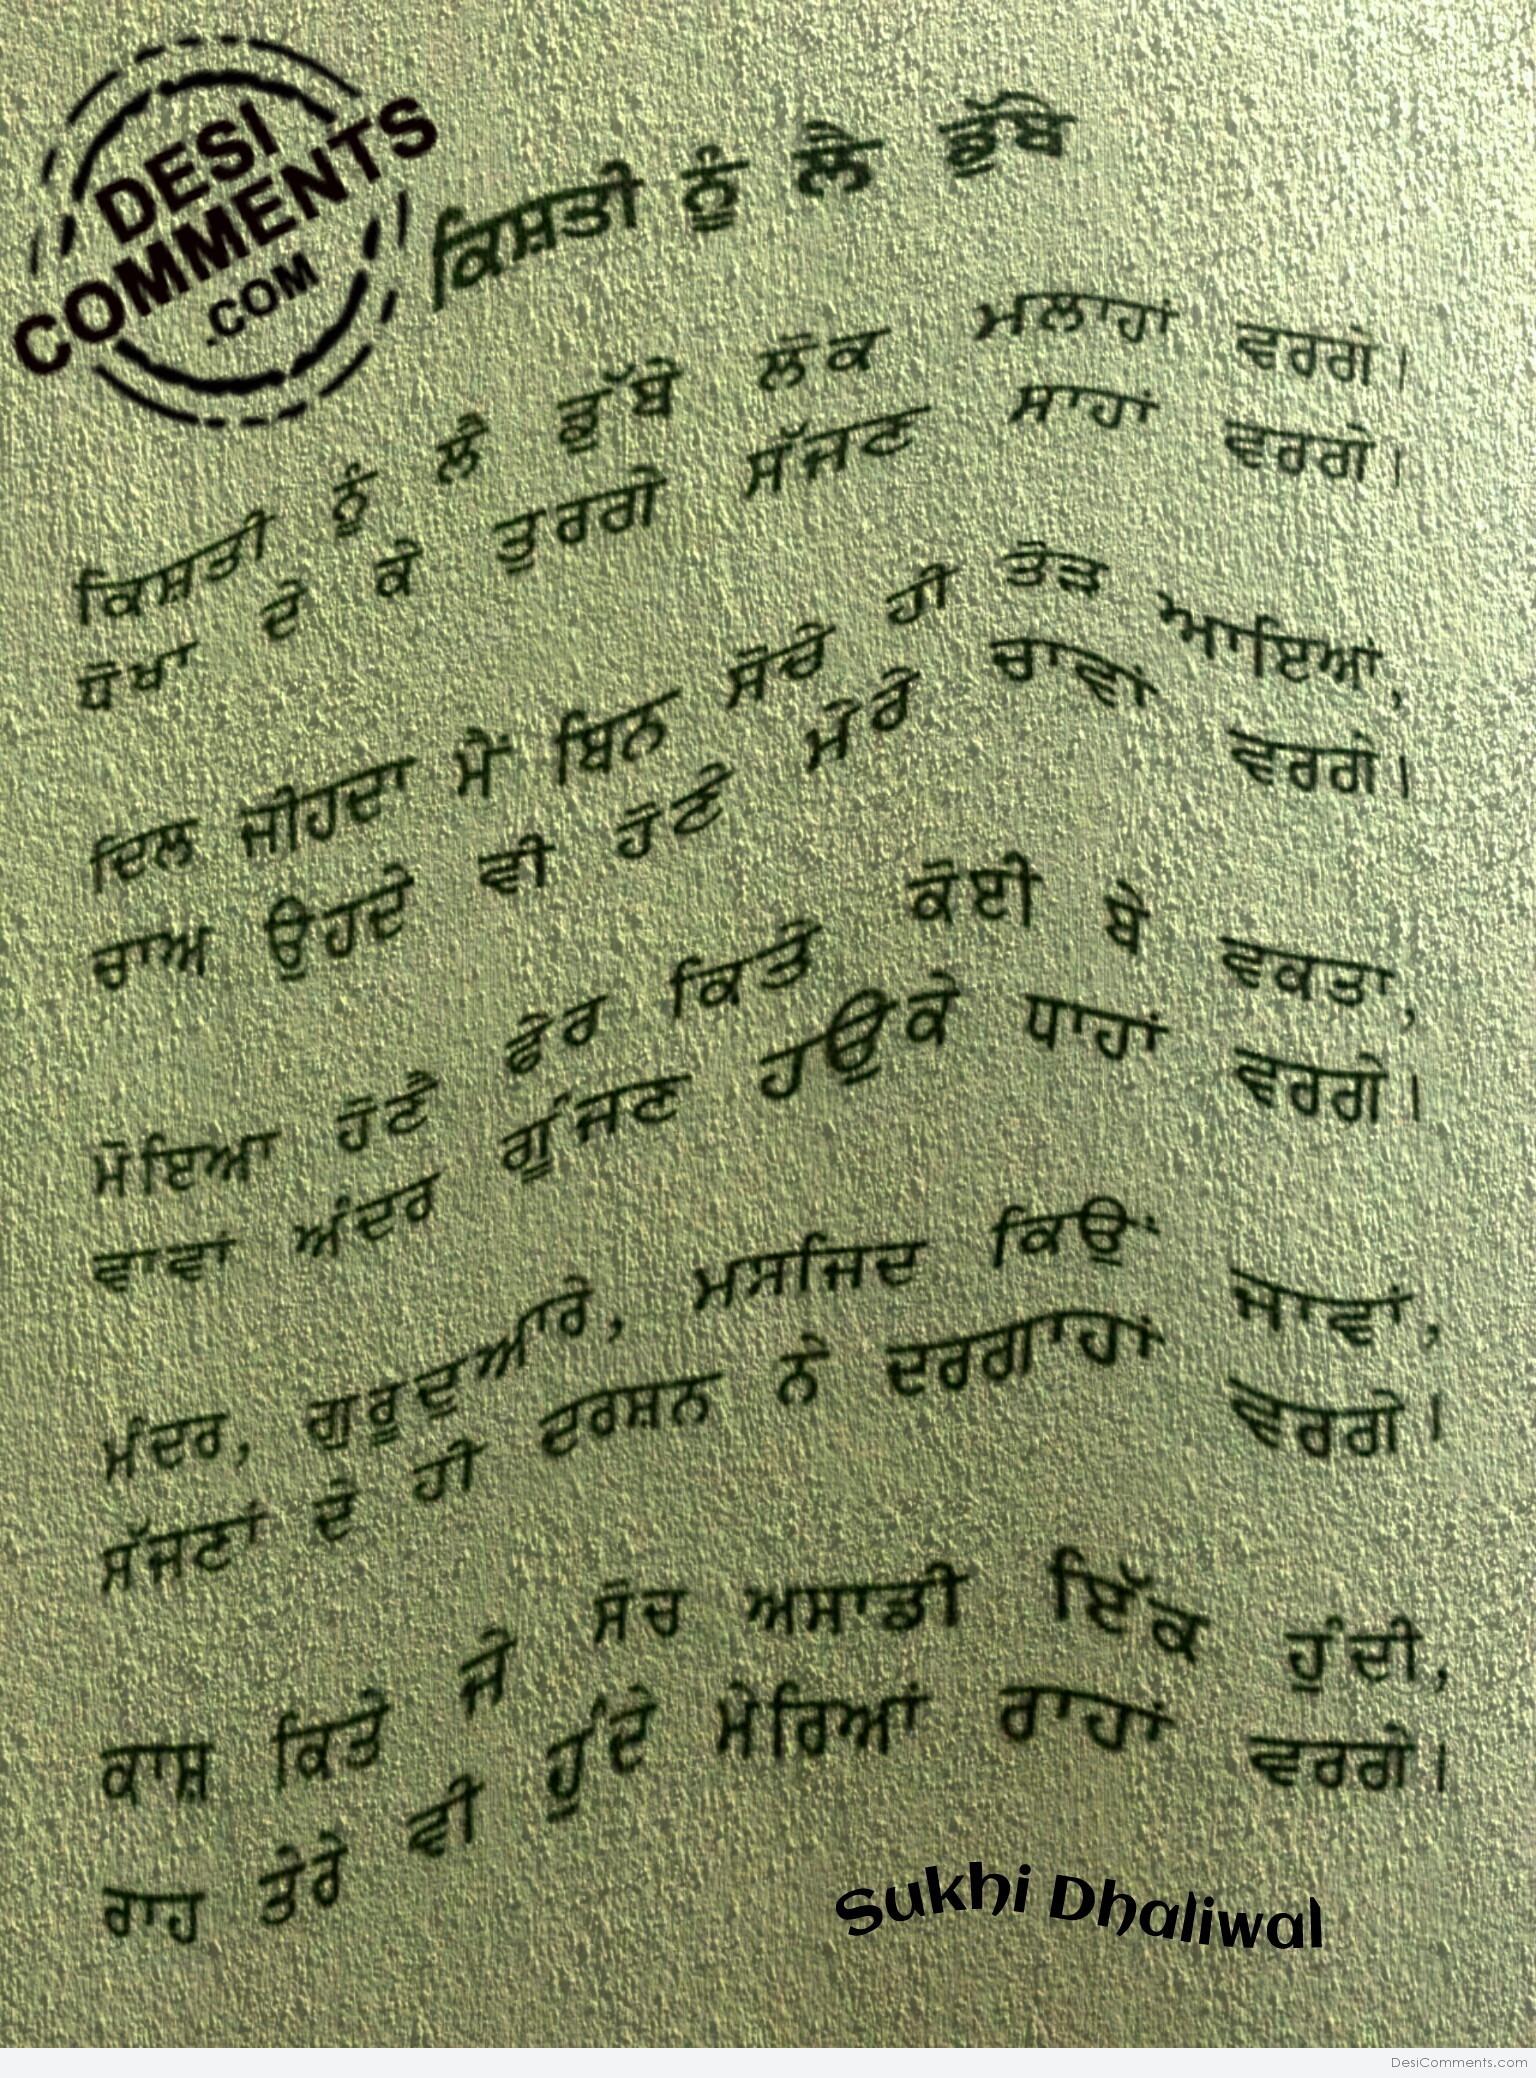 DESI
COMMENTS
.COM
ਕਿਸ਼ਤੀ ਨੂੰ ਲੈ ਡੁੱਬੇ
ਕਿਸ਼ਤੀ ਨੂੰ ਲੈ ਡੁੱਬੇ ਲੋਕ ਮਲਾਹਾਂ ਵਰਗੇ।
ਧੋਖਾ ਦੇ ਕੇ ਤੁਰਗੇ ਸੱਜਣ ਸਾਹਾਂ ਵਰਗੇ।
ਦਿਲ ਜੀਹਦਾ ਮੈਂ ਬਿਨ ਸੋਚੇ ਹੀ ਤੋੜ ਆਇਆਂ,
ਚਾਅ ਉਹਦੇ ਵੀ ਹੋਣੇ ਮੇਰੇ ਚਾਵਾਂ ਵਰਗੇ।
ਮੋਇਆ ਹੋਣੈ ਫੇਰ ਕਿਤੇ ਕੋਈ ਬੇ ਵਕਤਾ,
ਵਾਵਾਂ ਅੰਦਰ ਗੂੰਜਣ ਹਉਕੇ ਧਾਹਾਂ ਵਰਗੇ।
ਮੰਦਰ, ਗੁਰੂਦੁਆਰੇ, ਮਸਜਿਦ ਕਿਉਂ ਜਾਵਾਂ,
ਸੱਜਣਾਂ ਦੇ ਹੀ ਦਰਸ਼ਨ ਨੇ ਦਰਗਾਹਾਂ ਵਰਗੇ।
ਕਾਸ਼ ਕਿਤੇ ਜੇ ਸੋਚ ਅਸਾਡੀ ਇੱਕ ਹੁੰਦੀ,
ਰਾਹ ਤੇਰੇ ਵੀ ਹੁੰਦੇ ਮੇਰਿਆਂ ਰਾਹਾਂ ਵਰਗੇ।
Sukhi Dhaliwal
DesiComments.com